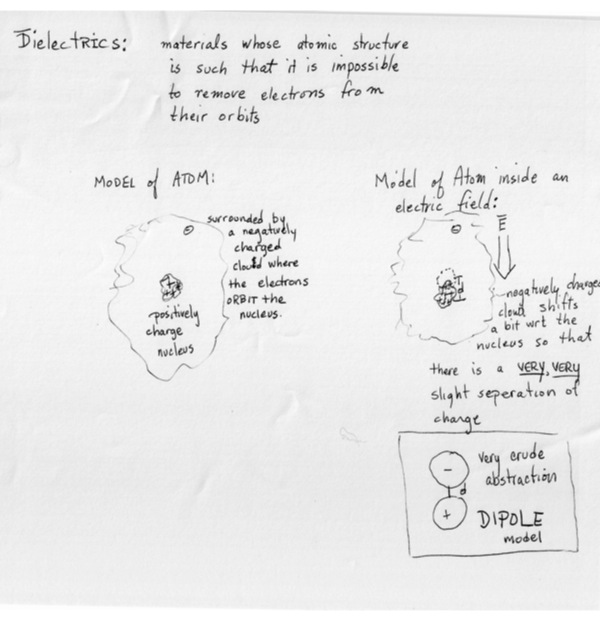 Dielectrics: materials whose atomic structure
is such that it is impossible
to remove electrons from
their orbits
MODEL of ATOM:
⊖ surrounded by
a negatively
charged
cloud where
the electrons
ORBIT the
nucleus.
+
positively
charge
nucleus
Model of Atom inside an
electric field:
⊖
E
d
negatively charged
cloud shifts
a bit wrt the
nucleus so that
there is a VERY, VERY
slight seperation of
charge
-
d
+
very crude
abstraction
DIPOLE
model